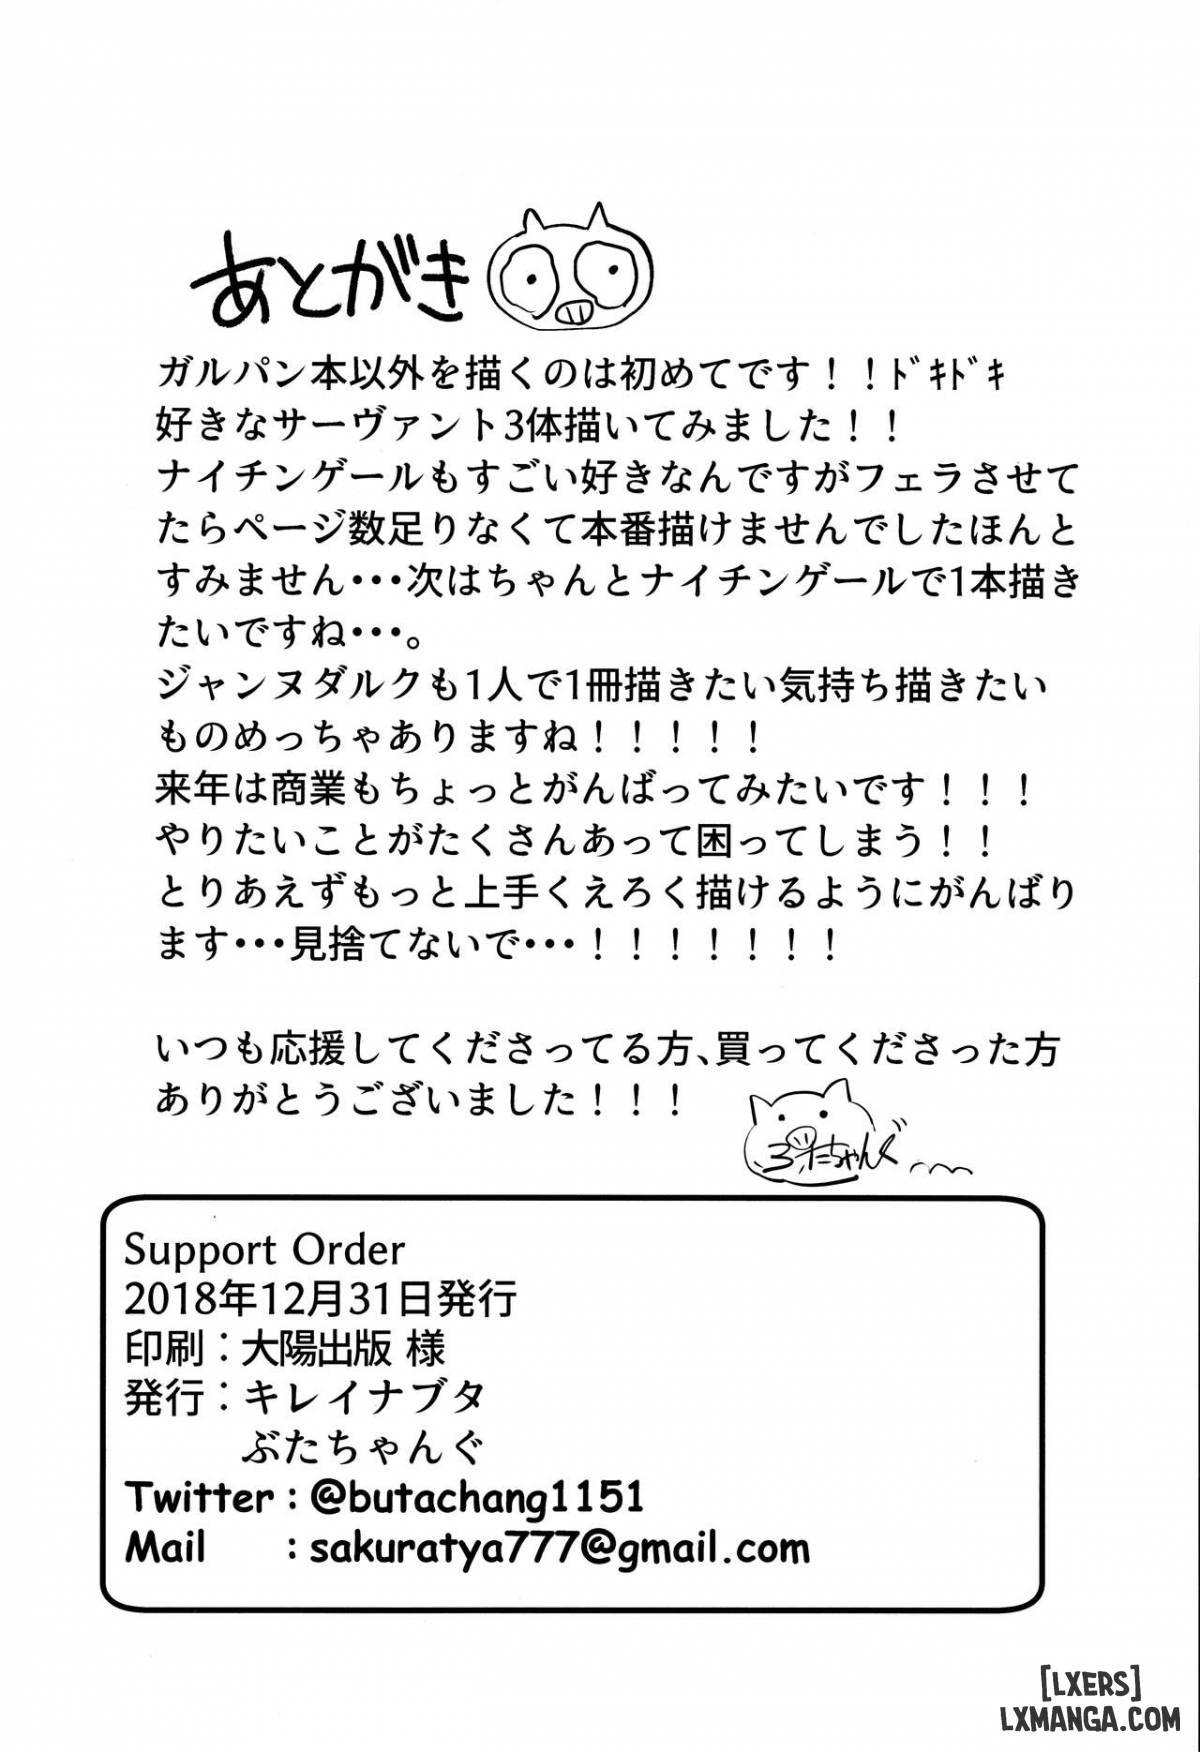 あとがき
ガルパン本以外を描くのは初めてです！！ﾄﾞｷﾄﾞｷ
好きなサーヴァント3体描いてみました！！
ナイチンゲールもすごい好きなんですがフェラさせて
たらページ数足りなくて本番描けませんでしたほんと
すみません･･･次はちゃんとナイチンゲールで1本描き
たいですね･･･。
ジャンヌダルクも1人で1冊描きたい気持ち描きたい
ものめっちゃありますね！！！！！
来年は商業もちょっとがんばってみたいです！！！
やりたいことがたくさんあって困ってしまう！！
とりあえずもっと上手くえろく描けるようにがんばり
ます･･･見捨てないで･･･！！！！！！！
いつも応援してくださってる方、買ってくださった方
ありがとうございました！！！
ぶたちゃんぐ
Support Order
2018年12月31日発行
印刷：大陽出版 様
発行：キレイナブタ
ぶたちゃんぐ
Twitter：@butachang1151
Mail ：sakuratya777@gmail.com
[LXERS]
LXMANGA.COM